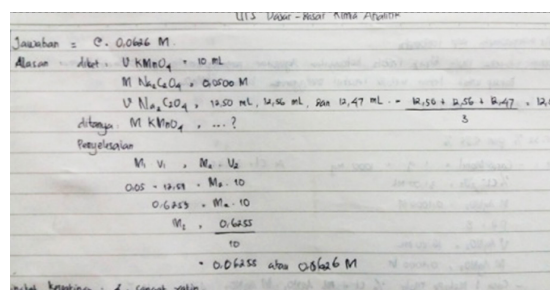 UTS Dasar-Dasar Kimia Analitik
Jawaban = C. 0.0626 M
Alasan = diket. V KMnO4 = 10 mL
M Na2C2O4 = 0,0500 M
V Na2C2O4 = 12,50 mL, 12,56 mL, dan 12,47 mL = 12,50 + 12,56 + 12,47 / 3 = 12,
ditanya. M KMnO4 = ....?
Penyelesaian
M1 V1 = M2 . V2
0.05 . 12,51 = M2 . 10
0.6255 = M2 . 10
M2 = 0,6255
10
= 0,06255 atau 0,0626 M